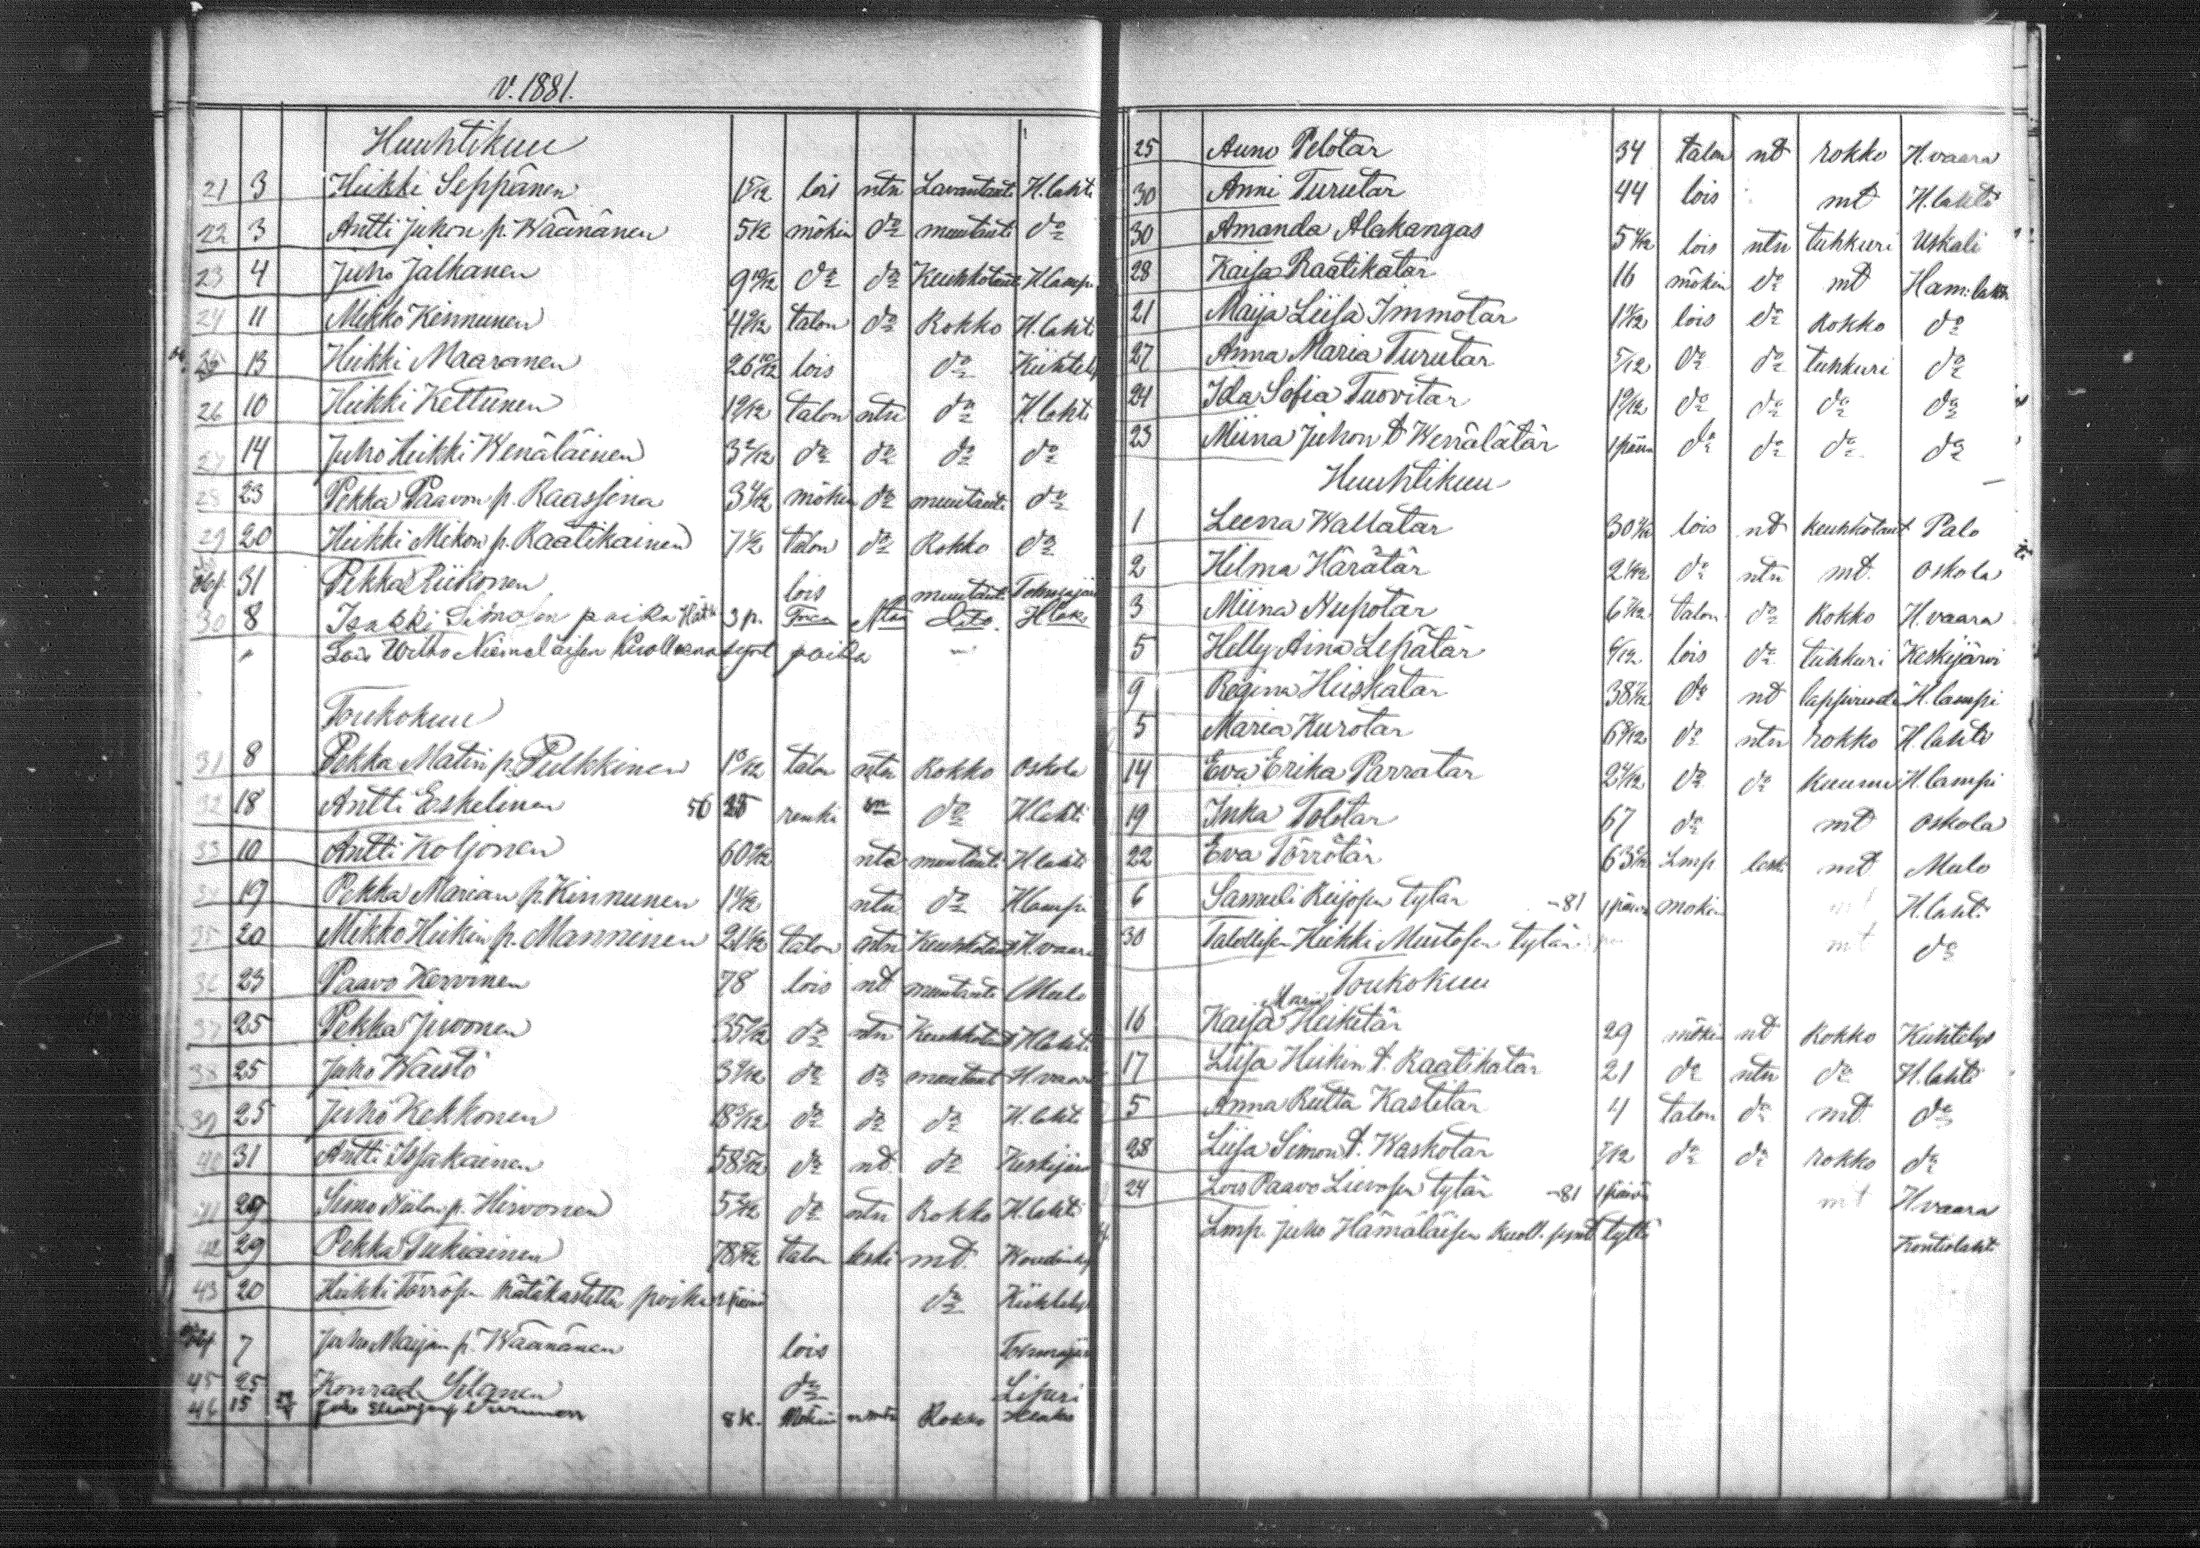 v. 1881.
Huuhtikuu
21 3 Heikki Seppänen 1 5/12 lois ntn Lavantauti H.lahti
22 3 Antti Juhon p. Wäänänen mökin do muutauti do
23 4 Juho Jalkanen 9 10/12 do do Keuhkotauti H.lampi
24 11 Mikko Kinnunen talon do Rokko H.lahti
13 Heikki Maaranen 26 10/12 lois do Kiihtelys
26 10 Heikki Kettunen talon ntn do H.lahti
27 14 Juho Heikki Wenäläinen 3 2/12 do do do do
28 23 Pekka Paavon p. Raassina mökin do muutauti do
29 20 Heikki Mikon p. Raatikainen talon do Rokko do
31 Pekka Riikonen lois muutauti Tohmajärvi
30 8 Isakki Simosen poika 3 p. Dito
Lois Wilho Niemeläisen Kuollena synt poika
Toukokuu
31 8 Pekka Matin p. Pulkkinen talon ntn Rokko Oskola
32 18 Antti Eskelinen 56 25 renki do H.lahti
33 10 Antti Koljonen ntn muutauti H.lahti
19 Pekka Marian p. Kinnunen ntn do H.lampi
35 20 Mikko Heikin p. Manninen talon ntn Keuhkotauti H.vaara
36 23 Paavo Kervinen 78 lois nt muutauti Mulo
37 25 Pekka Jivonen do ntn Keuhkotauti H.lahti
38 25 Juho Wäistö do do muutaut H.vaara
39 25 Juho Kekkonen do do do H.lahti
40 31 Antti Issakainen do nt do Keskijärvi
41 29 Simo Niilon p. Hirvonen do ntn Rokko H.lahti
42 29 Pekka Tukiainen talon leski mt.
43 20 Heikki Törrösen hätäkastettu poika do Kiihtelys
7 Juho Maijan p. Wäänänen lois Tohmajärvi
45 25 Konrad Silanen do Liperi
46 15 8 k. Mökin Rokko
25 Auno Pelotar 34 talon nt rokko H.vaara
30 Anni Turutar 44 lois mt H.lahti
30 Amanda Alakangas lois ntn tuhkuri Uskali
28 Kaisa Raatikatar 16 mökin do mt Ham:lahti
21 Maija Liisa Immotar lois do Rokko do
27 Anna Maria Turutar 5/12 do do tuhkuri do
24 Ida Sofia Tuovitar do do do do
23 Miina Juhon t Wenälätär 1 päivä do do do do
Huuhtikuu
1 Leena Wallatar lois nt keuhkotaut Palo
2 Hilma Härätär do ntn mt. Oskola
3 Miina Nupotar talon do Rokko H.vaara
5 Helly Aina Lepätär lois do tuhkuri Keskijärvi
9 Regina Hiiskatar do nt H.lampi
5 Maria Kurotar do ntn rokko H.lahti
14 Eva Erika Parratar do do kuume H.lampi
19 Inka Tolotar 67 do mt Oskola
22 Eva Törrötär Lmp leski mt Mulo
6 Samuli Reijosen tytär -81 1 päivä mökin mt H.lahti
30 Talollisen Heikki Mustosen tytär mt do
Toukokuu
16 Kaisa Maria Heiketär 29 mökin nt Rokko Kiihtelys
17 Liisa Heikin t. Raatikatar 21 do ntn do H.lahti
5 Anna Riitta Kastetar 4 talon do mt do
28 Liisa Simon t. Kaskotar do do rokko do
24 Lois Paavo Liivosen tytär -81 1 päivä mt H.vaara
Lmp. Juho Hämäläisen kuoll. synt tyttö Kontiolaht